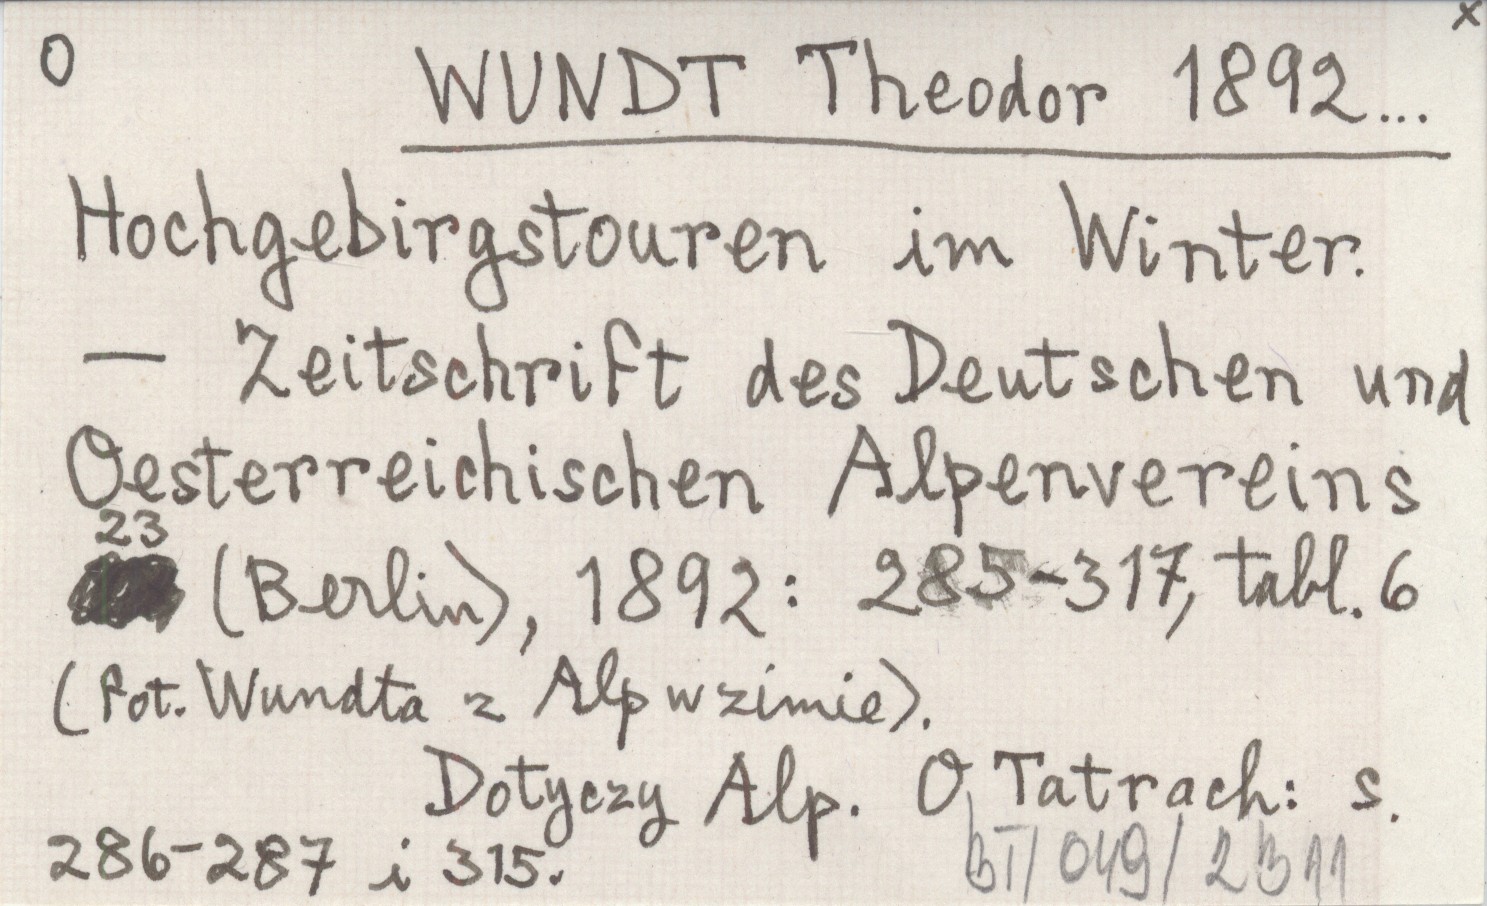 O x
WUNDT Theodor 1892...
Hochgebirgstouren im Winter.
— Zeitschrift des Deutschen und
Oesterreichischen Alpenvereins
23
(Berlin), 1892: 285-317, tabl. 6
(fot. Wundta z Alp w zimie).
Dotyczy Alp. O Tatrach: s.
286-287 i 315.
BT/049/2311